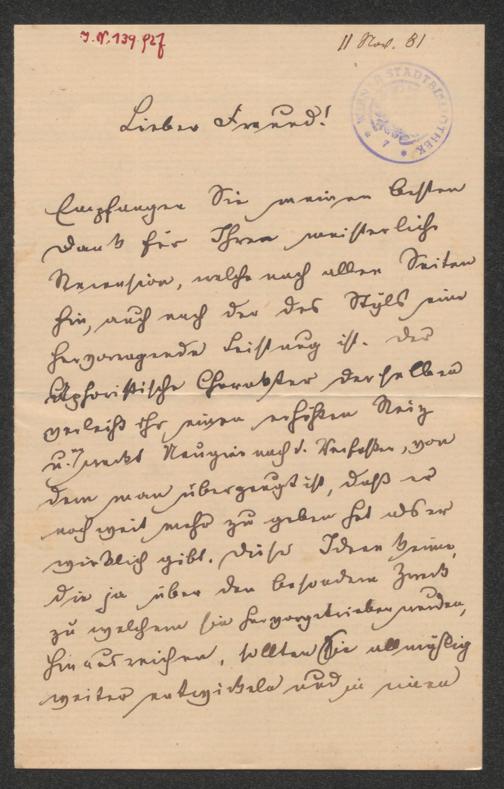 J.N. 139.927
11 Nov. 81
WIENER STADTBIBLIOTHEK
Lieber Freund!
Empfangen Sie meinen besten
Dank für Ihre meisterliche
Recension, welche nach allen Seiten
hin, auch nach der des Styls eine
hervorragende Leistung ist. Der
Aphoristische Charakter derselben
verleiht ihr einen erhöhten Reiz
u. weckt Neugier nach d. Verfasser, von
dem man überzeugt ist, daß er
noch weit mehr zu geben hat als er
wirklich gibt. Diese Ideen Keime,
die ja über den besondern Zweck
zu welchem sie hervorgetrieben wurden,
hinausreichen, sollten Sie allmälig
weiter entwickeln und in einem